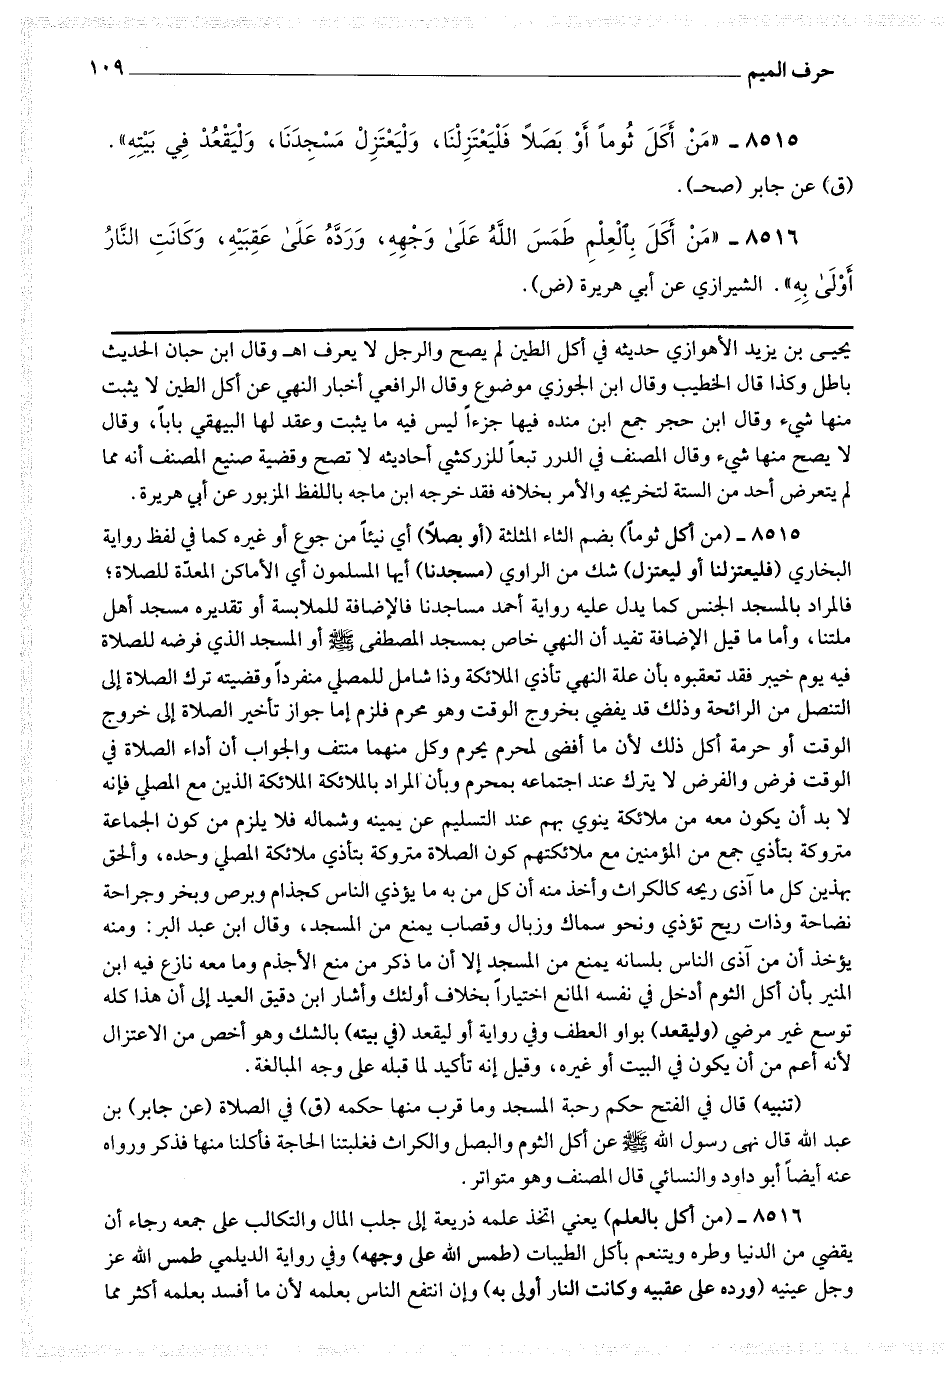 حرف الميم ١٠٩
٨٥١٥ ـ «مَنْ أَكَلَ ثُوماً أَوْ بَصَلاً فَلْيَعْتَزِلْنَا، وَلْيَعْتَزِلْ مَسْجِدَنَا، وَلْيَقْعُدْ فِي بَيْتِهِ».
(ق) عن جابر (صحـ).
٨٥١٦ ـ «مَنْ أَكَلَ بِٱلْعِلْمِ طَمَسَ اللَّهُ عَلَىٰ وَجْهِهِ، وَرَدَّهُ عَلَىٰ عَقِبَيْهِ، وَكَانَتِ النَّارُ
أَوْلَىٰ بِهِ». الشيرازي عن أبي هريرة (ض).
يحيـى بن يزيد الأهوازي حديثه في أكل الطين لم يصح والرجل لا يعرف اهـ وقال ابن حبان الحديث
باطل وكذا قال الخطيب وقال ابن الجوزي موضوع وقال الرافعي أخبار النهي عن أكل الطين لا يثبت
منها شيء وقال ابن حجر جمع ابن منده فيها جزءاً ليس فيه ما يثبت وعقد لها البيهقي باباً، وقال
لا يصح منها شيء وقال المصنف في الدرر تبعاً للزركشي أحاديثه لا تصح وقضية صنيع المصنف أنه مما
لم يتعرض أحد من الستة لتخريجه والأمر بخلافه فقد خرجه ابن ماجه باللفظ المزبور عن أبي هريرة.
٨٥١٥ ـ (من أكل ثوماً) بضم الثاء المثلثة (أو بصلاً) أي نيئاً من جوع أو غيره كما في لفظ رواية
البخاري (فليعتزلنا أو ليعتزل) شك من الراوي (مسجدنا) أيها المسلمون أي الأماكن المعدّة للصلاة؛
فالمراد بالمسجد الجنس كما يدل عليه رواية أحمد مساجدنا فالإضافة للملابسة أو تقديره مسجد أهل
ملتنا، وأما ما قيل الإضافة تفيد أن النهي خاص بمسجد المصطفى ﷺ أو المسجد الذي فرضه للصلاة
فيه يوم خيبر فقد تعقبوه بأن علة النهي تأذي الملائكة وذا شامل للمصلي منفرداً وقضيته ترك الصلاة إلى
التنصل من الرائحة وذلك قد يفضي بخروج الوقت وهو محرم فلزم إما جواز تأخير الصلاة إلى خروج
الوقت أو حرمة أكل ذلك لأن ما أفضى لمحرم يحرم وكل منهما منتف والجواب أن أداء الصلاة في
الوقت فرض والفرض لا يترك عند اجتماعه بمحرم وبأن المراد بالملائكة الملائكة الذين مع المصلي فإنه
لا بد أن يكون معه من ملائكة ينوي بهم عند التسليم عن يمينه وشماله فلا يلزم من كون الجماعة
متروكة بتأذي جمع من المؤمنين مع ملائكتهم كون الصلاة متروكة بتأذي ملائكة المصلي وحده، وألحق
بهذين كل ما آذى ريحه كالكراث وأخذ منه أن كل من به ما يؤذي الناس كجذام وبرص وبخر وجراحة
نضاحة وذات ريح تؤذي ونحو سماك وزبال وقصاب يمنع من المسجد، وقال ابن عبد البر: ومنه
يؤخذ أن من آذى الناس بلسانه يمنع من المسجد إلا أن ما ذكر من منع الأجذم وما معه نازع فيه ابن
المنير بأن أكل الثوم أدخل في نفسه المانع اختياراً بخلاف أولئك وأشار ابن دقيق العيد إلى أن هذا كله
توسع غير مرضي (وليقعد) بواو العطف وفي رواية أو ليقعد (في بيته) بالشك وهو أخص من الاعتزال
لأنه أعم من أن يكون في البيت أو غيره، وقيل إنه تأكيد لما قبله على وجه المبالغة.
(تنبيه) قال في الفتح حكم رحبة المسجد وما قرب منها حكمه (ق) في الصلاة (عن جابر) بن
عبد الله قال نهى رسول الله ﷺ عن أكل الثوم والبصل والكراث فغلبتنا الحاجة فأكلنا منها فذكر ورواه
عنه أيضاً أبو داود والنسائي قال المصنف وهو متواتر.
٨٥١٦ ـ (من أكل بالعلم) يعني اتخذ علمه ذريعة إلى جلب المال والتكالب على جمعه رجاء أن
يقضي من الدنيا وطره ويتنعم بأكل الطيبات (طمس الله على وجهه) وفي رواية الديلمي طمس الله عز
وجل عينيه (ورده على عقبيه وكانت النار أولى به) وإن انتفع الناس بعلمه لأن ما أفسد بعلمه أكثر مما